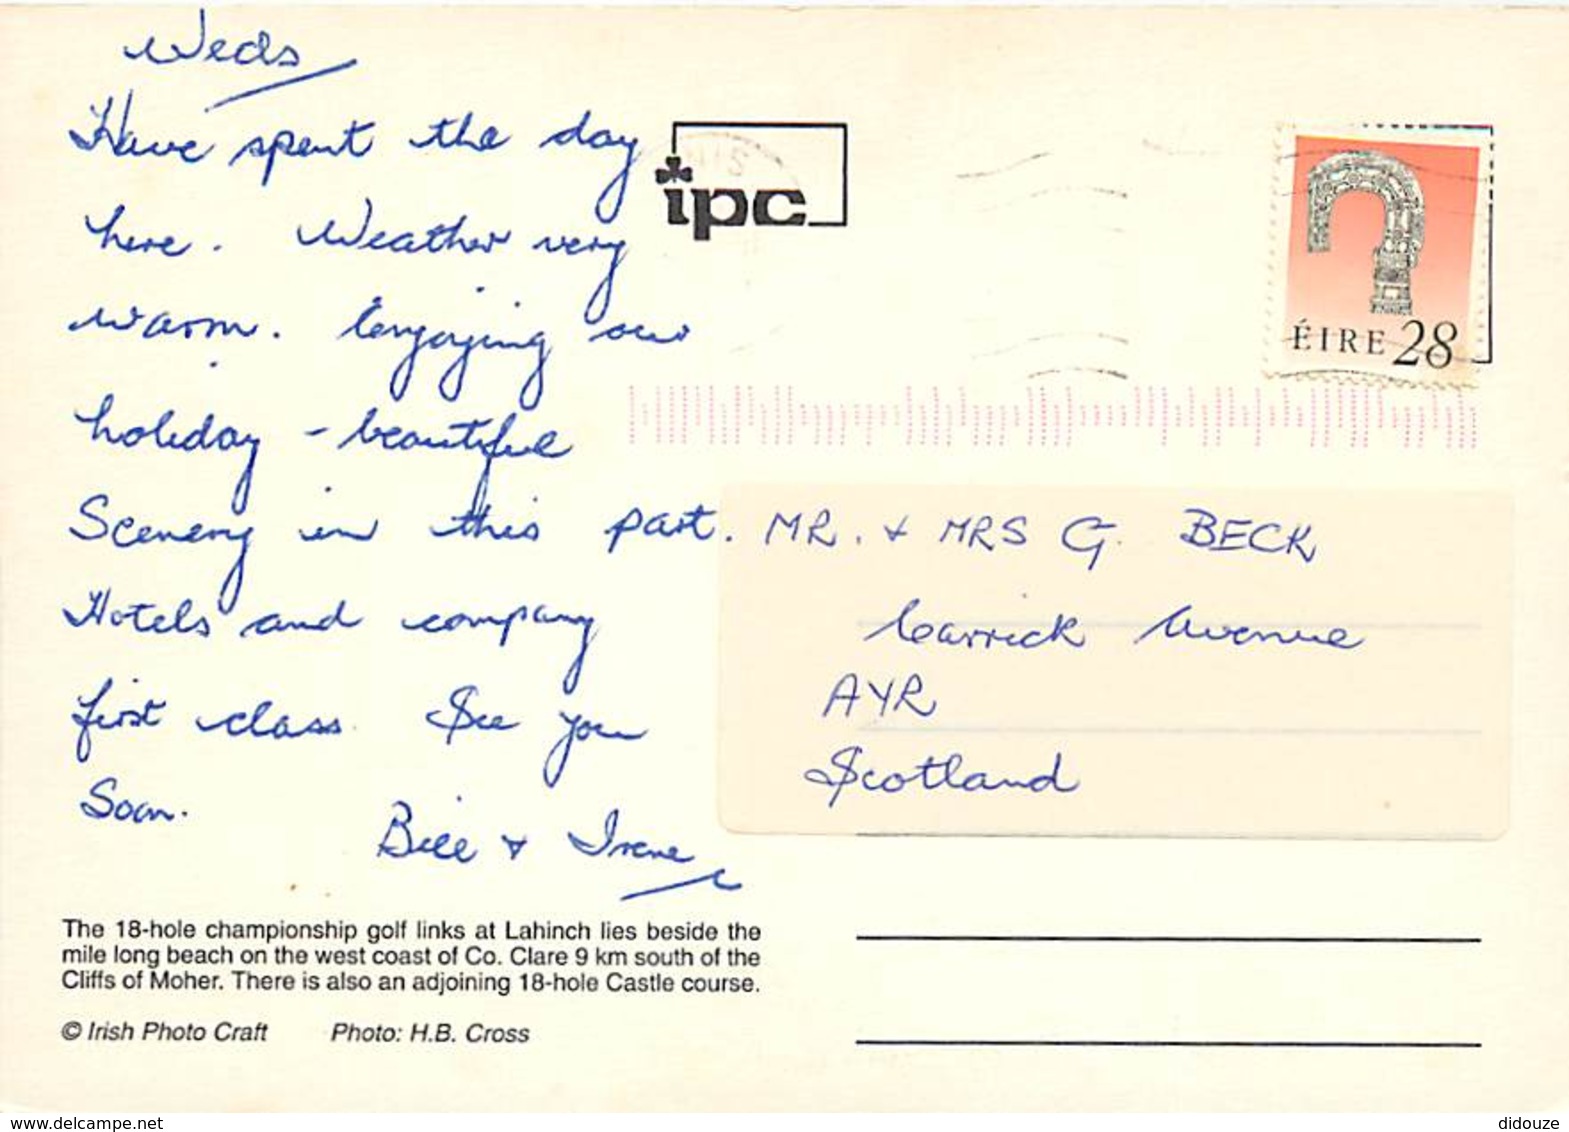 Weds
Have spent the day
here. Weather very
warm. Enjoying our
holiday - beautiful
Scenery in this part.
Hotels and company
first class. See you
Soon.
Bill + Irene
The 18-hole championship golf links at Lahinch lies beside the
mile long beach on the west coast of Co. Clare 9 km south of the
Cliffs of Moher. There is also an adjoining 18-hole Castle course.
© Irish Photo Craft Photo: H.B. Cross
ipc
ÉIRE 28
MR. + MRS G. BECK
Carrick Avenue
AYR
Scotland
www.delcampe.net
didouze